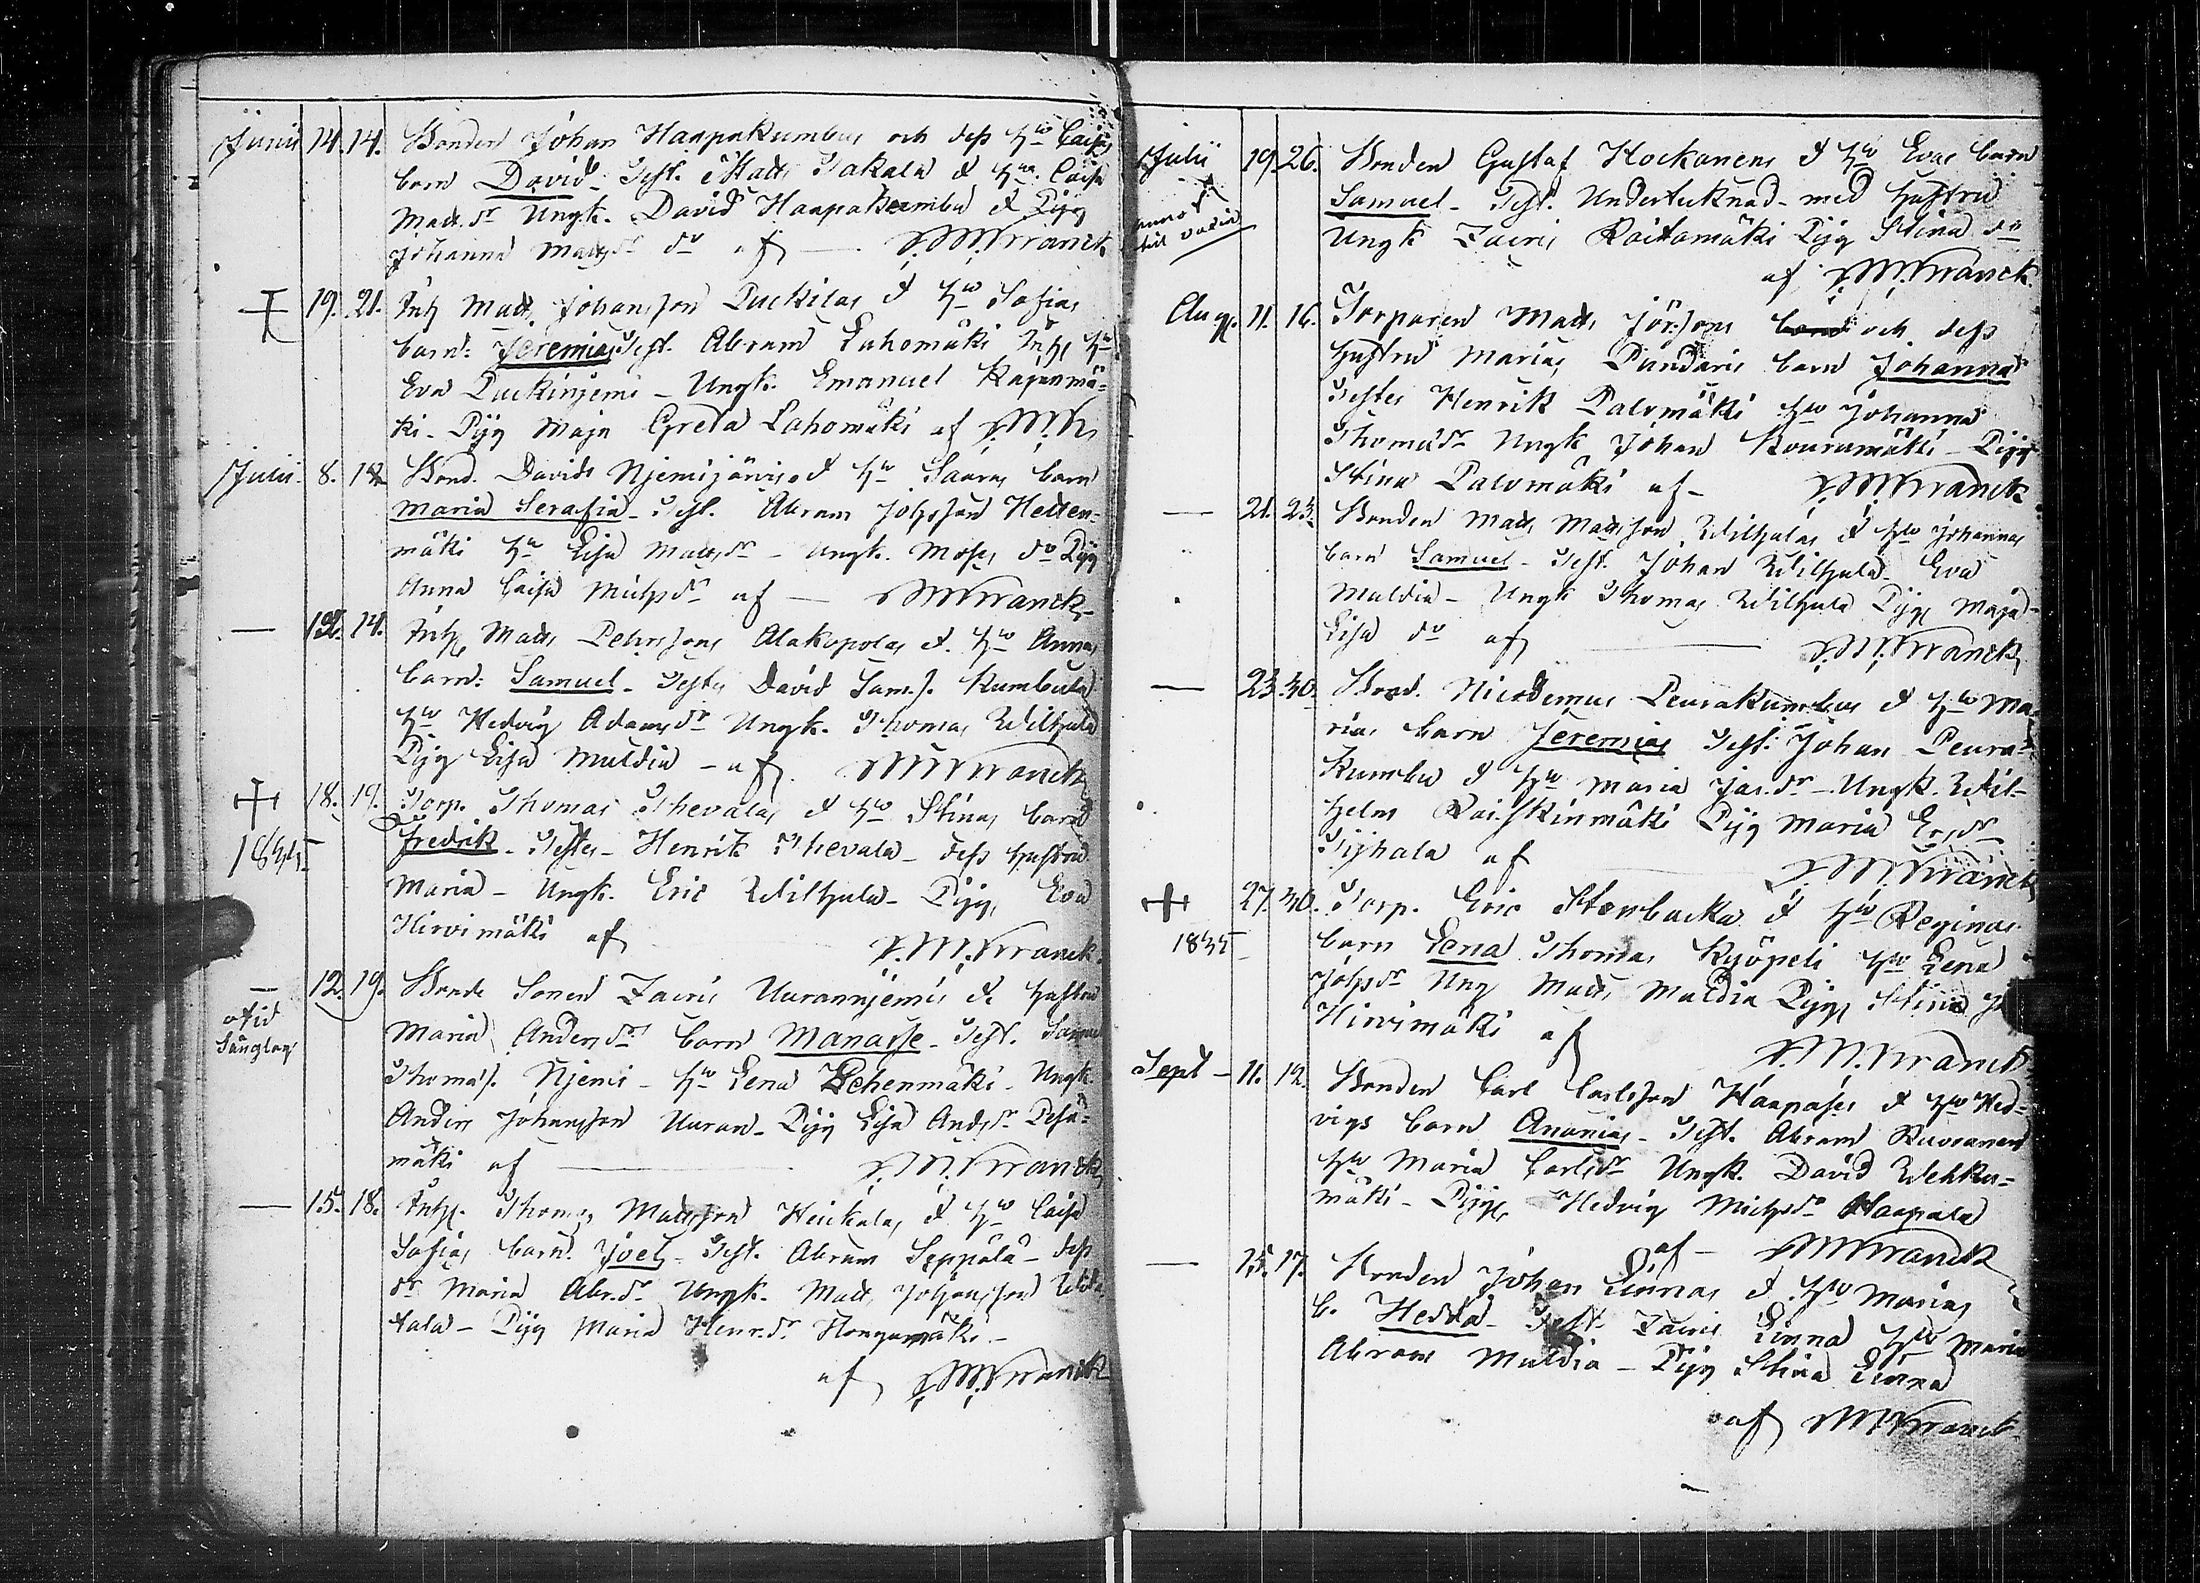 Junii 14. 14. Bonden Johan Haapakumbus och dess h:u Caisas
barn David. Test. Matts Sakala & h:u Caisa
Matts d:r Ungk. David Haapakumbu & Pig.
Johanna Matts d:r d:o af — J.M. Kranck
19. 21. Inh. Matts Johansson Puckilas & h:u Sofias
barn: Jeremias Test. Abram Lahomäki Inh. h:u
Eva Puckinjemi — Ungk. Emanuel Kapenmä-
ki — Pig. Maja Greta Lahomäki af J.M.K.
Julii. 8. 12. Bond. Davids Njemijärvis & h:u Saaras barn
Maria Serafia — Test. Abram Johsson Hetten-
mäki h:u Lisa Matts d:r — Ungk. Moses d:o Pig.
Anna Caisa Michs d:r af — J.M. Kranck
— 12. 14. Inh. Matts Pehrssons Alakopolas & h:u Annas
barn: Samuel — Testes David Sam.s. Kumbula
h:u Hedvig Adams d:r Ungk. Thomas Wilhula
Pig. Lisa Muldia — af J.M. Kranck
18. 19. Torp. Thomas Thevalas & h:u Stinas barn
1835 Fredrik — Testes — Henrik Thevala — dess hustru
Maria — Ungk. Eric Wilhula — Pig. Eva
Hirvimäki af J.M. Kranck.
— 12. 19. Bonde Sonen Zacris Uurannjemis & hustru
Maria Anders d:r barn Manasse — Test. Samuel
Thomas s. Njemi — h:u Lena Lehenmäki — Ungk.
Anders Johansson Uuran — Pig. Lisa Ands d:r Pesä-
mäki af — J.M. Kranck
— 15. 18. Inh. Thomas Mattsson Heickalas & h:u Caisa
Sofias barn: Joel — Test. Abram Seppälä — dess
d:r Maria Abr. d:r Ungk. Matts Johansson
tala — Pig. Maria Henr. d:r Hongamäki —
af J.M. Kranck
Julii 19. 26. Bonden Gustaf Hockanens & h:u Evas barn
Samuel — Test. Undertecknad — med hustru
Ungk Zacris Raitamäki Pig Stina d:o
af J.M. Kranck.
Aug. 11. 16. Torparen Matts Jörssons barn och dess
hustru Marias Pundaris barn Johanna
Testes Henrik Palomäki h:u Johanna
Thomas d:r Ungk Johan Kouramäki — Pig.
Stina Palomäki af — J.M. Kranck
— 21. 23. Bonden Matts Mattsson Wilhulas & h:u Johannas
barn Samuel — Test. Johan Wilhula — Eva
Muldia — Ungk Thomas Wilhula Pig. Maja
Lisa d:o af — J.M. Kranck
— 23. 30. Bond. Nicodemus Peurakumbus & h:u Ma-
rias barn Jeremias Test. Johan Peura-
kumbu & h:u Maria Jac. d:r — Ungk. Wil-
helm Raiskinmäki Pig Maria Ers d:r
Tijhala af J.M. Kranck
27. 30. Torp. Eric Stenbacka & h:u Reginas
1835 barn Lena Thomas Kyöpeli h:u Lena
Johs d:r Ung Matts Muldia Pig. Stina
Hirvimäki af J.M. Kranck
Sept — 11. 12. Bonden Carl Carlsson Haapases & h:u Hed-
vigs barn Ananias — Test. Abram Ruvanen
h:u Maria Carls d:r Ungk. David Wehku-
mäki — Pig. Hedvig Michs d:r Haapala
af — J.M. Kranck
— 15. 17. Bonden Johan Linnas & h:u Marias
b. Hedda — Test. Zacris Linna h:u Maria
Abram Muldia — Pig Stina Linna
af J.M. Kranck